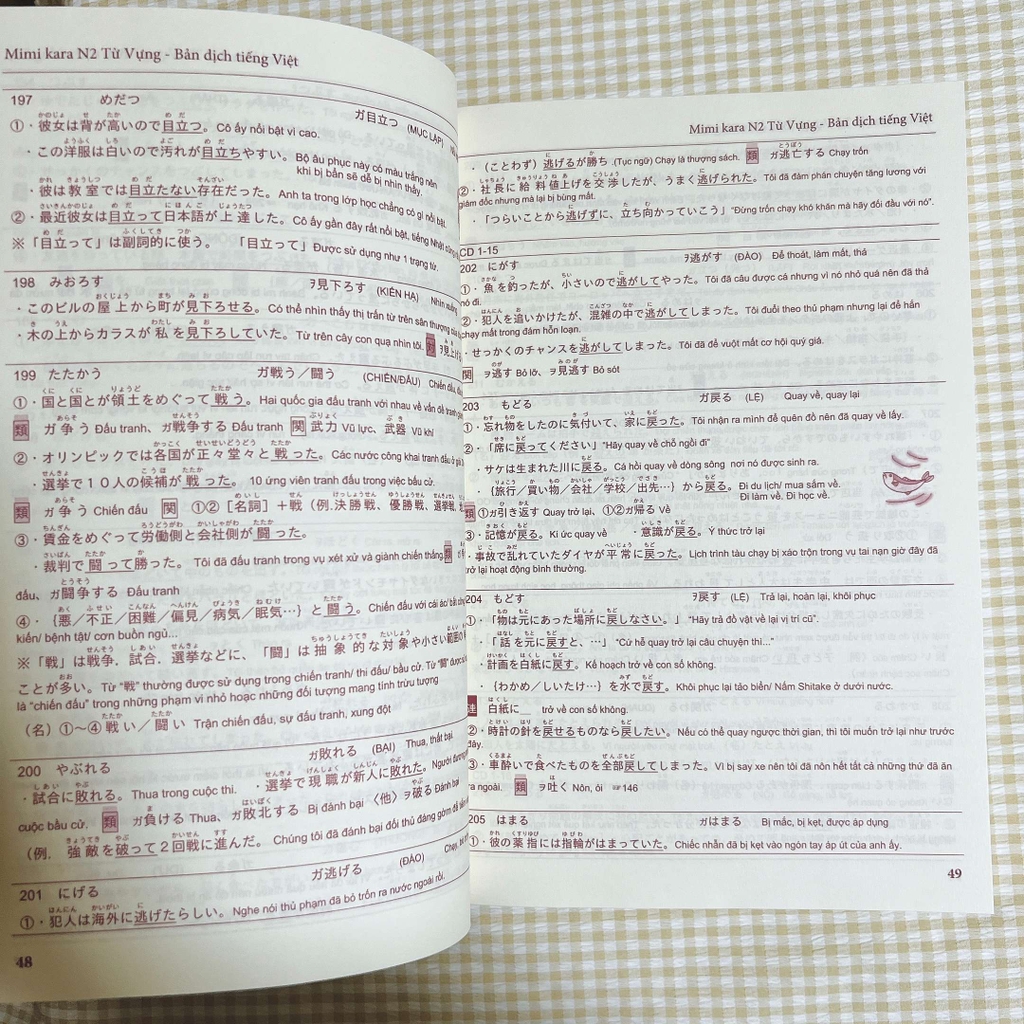 Mimi kara N2 Từ Vựng - Bản dịch tiếng Việt
197 めだつ ガ目立つ (MỤC LẬP)
①・彼女は背が高いので目立つ。Cô ấy nổi bật vì cao.
・この洋服は白いので汚れが目立ちやすい。Bộ âu phục này có màu trắng nên
khi bị bẩn sẽ dễ bị nhìn thấy.
・彼は教室では目立たない存在だった。Anh ta trong lớp học chẳng có gì nổi bật.
②・最近彼女は目立って日本語が上達した。Cô ấy gần đây rất nổi bật, tiếng Nhật cũng
※「目立って」は副詞的に使う。 「目立って」Được sử dụng như 1 trạng từ.
198 みおろす ヲ見下ろす (KIẾN HẠ) Nhìn xuống
・このビルの屋上から町が見下ろせる。Có thể nhìn thấy thị trấn từ trên sân thượng của
・木の上からカラスが私を見下ろしていた。Từ trên cây con quạ nhìn tôi. 対 ヲ見上げ
199 たたかう ガ戦う／闘う (CHIẾN/ĐẤU) Chiến đấu,
①・国と国とが領土をめぐって戦う。Hai quốc gia đấu tranh với nhau về vấn đề tranh
類 ガ争う Đấu tranh、ガ戦争する Đấu tranh 関 武力 Vũ lực、武器 Vũ khí
②・オリンピックでは各国が正々堂々と戦った。Các nước công khai tranh đấu ở
・選挙で１０人の候補が戦った。10 ứng viên tranh đấu trong việc bầu cử.
類 ガ争う Chiến đấu 関 ①②［名詞］＋戦（例.決勝戦、優勝戦、選挙戦、
③・賃金をめぐって労働側と会社側が闘った。
・裁判で闘って勝った。 Tôi đã đấu tranh trong vụ xét xử và giành chiến thắng. 類
đấu、ガ闘争する Đấu tranh
④・｛悪／不正／困難／偏見／病気／眠気…｝と闘う。Chiến đấu với cái ác/ bất
kiến/ bệnh tật/ cơn buồn ngủ...
※「戦」は戦争．試合．選挙などに、「闘」は抽象的な対象や小さい範囲の
ことが多い。Từ “戦” thường được sử dụng trong chiến tranh/ thi đấu/ bầu cử. Từ “闘” được
là “chiến đấu” trong những phạm vi nhỏ hoặc những đối tượng mang tính trừu tượng
（名）①～④戦い／闘い Trận chiến đấu, sự đấu tranh, xung đột
200 やぶれる ガ敗れる (BẠI) Thua, thất bại
・試合に敗れる。Thua trong cuộc thi. ・選挙で現職が新人に敗れた。Người đương
cuộc bầu cử. 類 ガ負ける Thua、ガ敗北する Bị đánh bại 〈他〉ヲ破る Đánh bại
（例．強敵を破って２回戦に進んだ。 Chúng tôi đã đánh bại đối thủ đáng gờm để
201 にげる ガ逃げる (ĐÀO) Chạy,
①・犯人は海外に逃げたらしい。Nghe nói thủ phạm đã bỏ trốn ra nước ngoài rồi.
48
Mimi kara N2 Từ Vựng - Bản dịch tiếng Việt
・（ことわざ）逃げるが勝ち．(Tục ngữ) Chạy là thượng sách. 類 ガ逃亡する Chạy trốn
②・社長に給料値上げを交渉したが、うまく逃げられた。Tôi đã đàm phán chuyện tăng lương với
giám đốc nhưng mà lại bị bùng mất.
・「つらいことから逃げずに、立ち向かっていこう」“Đừng trốn chạy khó khăn mà hãy đối đầu với nó”.
CD 1-15
202 にがす ヲ逃がす (ĐÀO) Để thoát, làm mất, thả
①・魚を釣ったが、小さいので逃がしてやった。Tôi đã câu được cá nhưng vì nó nhỏ quá nên đã thả
nó đi.
②・犯人を追いかけたが、混雑の中で逃がしてしまった。Tôi đuổi theo thủ phạm nhưng lại để hắn
chạy mất trong đám hỗn loạn.
・せっかくのチャンスを逃がしてしまった。Tôi đã để vuột mất cơ hội quý giá.
関 ヲ逃す Bỏ lỡ、ヲ見逃す Bỏ sót
203 もどる ガ戻る (LỆ) Quay về, quay lại
①・忘れ物をしたのに気付いて、家に戻った。Tôi nhận ra mình để quên đồ nên đã quay về lấy.
②・「席に戻ってください」“Hãy quay về chỗ ngồi đi”
・サケは生まれた川に戻る。Cá hồi quay về dòng sông nơi nó được sinh ra.
・｛旅行／買い物／会社／学校／出先…｝から戻る。Đi du lịch/ mua sắm về.
Đi làm về. Đi học về.
類 ①ガ引き返す Quay trở lại、①②ガ帰る Về
③・記憶が戻る。Kí ức quay về ・意識が戻る。Ý thức trở lại
・事故で乱れていたダイヤが平常に戻った。Lịch trình tàu chạy bị xáo trộn trong vụ tai nạn giờ đây đã
trở lại hoạt động bình thường.
204 もどす ヲ戻す (LỆ) Trả lại, hoàn lại, khôi phục
①・「物は元にあった場所に戻しなさい。」 “Hãy trả đồ vật về lại vị trí cũ”.
・「話を元に戻すと、…」 “Cứ hễ quay trở lại câu chuyện thì...”
・計画を白紙に戻す。Kế hoạch trở về con số không.
・｛わかめ／しいたけ…｝を水で戻す。Khôi phục lại tảo biển/ Nấm Shitake ở dưới nước.
連 白紙に＿ trở về con số không.
②・時計の針を戻せるものなら戻したい。Nếu có thể quay ngược thời gian, thì tôi muốn trở lại như trước
đây.
③・車酔いで食べたものを全部戻してしまった。Vì bị say xe nên tôi đã nôn hết tất cả những thứ đã ăn
ra ngoài. 類 ヲ吐く Nôn, ói ☞146
205 はまる ガはまる Bị mắc, bị kẹt, được áp dụng
①・彼の薬指には指輪がはまっていた。Chiếc nhẫn đã bị kẹt vào ngón tay áp út của anh ấy.
49